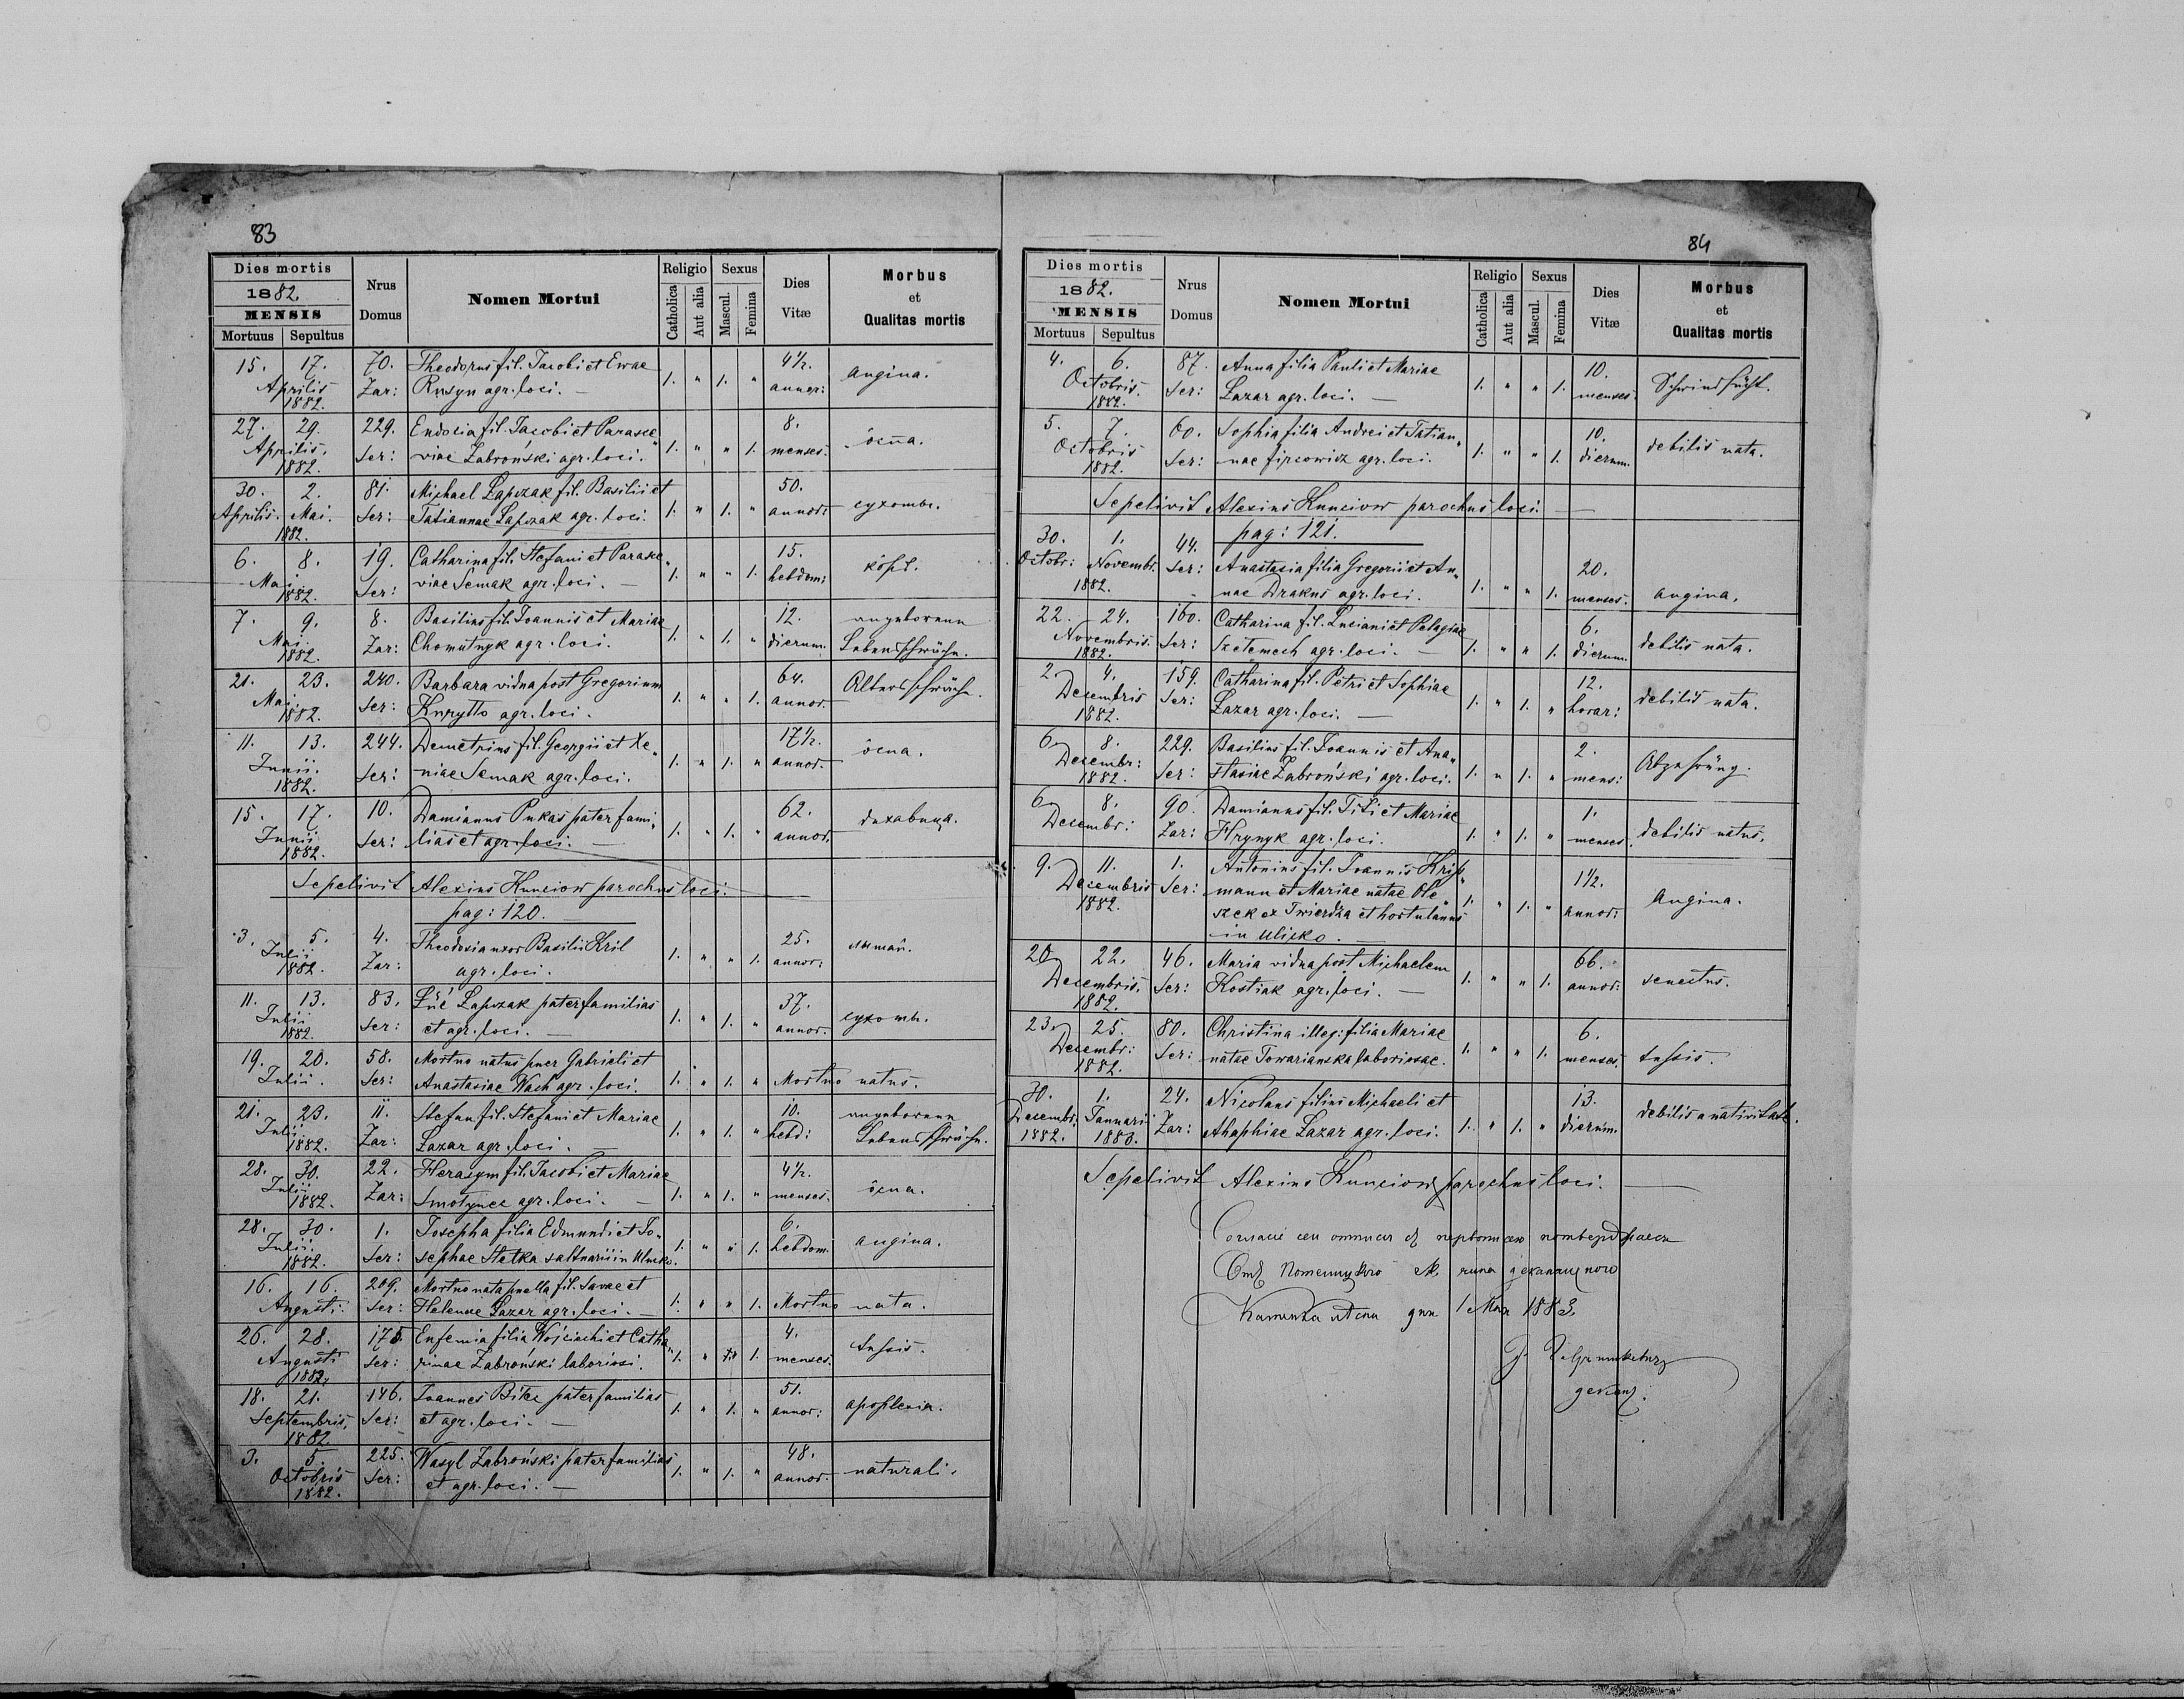 83
Dies mortis
1882.
MENSIS
Mortuus Sepultus
Nrus
Domus
Nomen Mortui
Religio
Catholica
Aut alia
Sexus
Mascul.
Femina
Dies
Vitæ
Morbus
et
Qualitas mortis
15. 17. 70. Theodorus fil. Jacobi et Ewae 1. " 1. " 4½. angina.
Aprilis 1882. Zar: Rusyn agr. loci. — annor:
27. 29. 229. Eudocia fil. Jacobi et Parasce„ 1. " " 1. 8. ôспа.
Aprilis. 1882. Ser: viae Zabroński agr. loci. menses.
30. 2. 81. Michael Łapczak fil. Basilii et 1. " 1. " 50. сухоты.
Aprilis. Mai. 1882. Ser: Tatiannae Łapczak agr. loci. annor:
6. 8. 19. Catharina fil. Stefani et Parasce„ 1. " " 1. 15.
Mai 1882. Ser: viae Semak agr. loci. — hebdom:
7. 9. 8. Basilius fil. Joannis et Mariae 1. " 1. " 12. angeborene
Mai 1882. Zar: Chomutnyk agr. loci. dierum. Lebensschwäche.
21. 23. 240. Barbara vidua post Gregorium 1. " " 1. 64. Altersschwäche.
Mai 1882. Ser: Kuryłło agr. loci. annor.
11. 13. 244. Demetrius fil. Georgii et Xe„ 1. " 1. " 17½. ôспа.
Junii. 1882. Ser: niae Semak agr. loci. annor.
15. 17. 10. Damianus Pukas pater fami„ 1. " 1. " 62.
Junii 1882. Ser: lias et agr. loci. — annor.
Sepelivit Alexius Kunciow parochus loci.
pag: 120.
3. 5. 4. Theodosia uxor Basilii Kril 1. " " 1. 25.
Julii 1882. Zar: agr. loci. annor:
11. 13. 83. Łapczak pater familias 1. " 1. " 37. сухоты.
Julii 1882. Ser: et agr. loci. — annor.
19. 20. 58. Mortuo natus puer Gabrieli et 1. " 1. " Mortuo natus.
Julii. Ser: Anastasiae Wach agr. loci.
21. 23. 11. Stefan fil. Stefani et Mariae 1. " 1. " 10. angeborene
Julii 1882. Zar: Łazar agr. loci. — hebd: Lebensschwäche.
28. 30. 22. Herasym fil. Jacobi et Mariae 1. " 1. " 4½. ôспа.
Julii 1882. Zar: Smolynec agr. loci. — menses.
28. 30. 1. Josepha filia Edmundi et Jo„ 1. " " 1. 6. angina.
Julii 1882. Ser: sephae Statka saltuarii in Ulicko. hebdom.
16. 16. 209. Mortuo nata puella fil. Savae et 1. " " 1. Mortuo nata.
Augusti. Ser: Helenae Łazar agr. loci. —
26. 28. 175. Eufemia filia Wojciechi et Catha„ 1. " 1. 4. tussis.
Augusti 1882. Ser: rinae Zabroński laboriosi. menses.
18. 21. 146. Joannes Bilec pater familias 1. " 1. " 51. apoplexia.
Septembris, 1882. Ser: et agr. loci. — annor:
3. 5. 225. Wasyl Zabroński pater familias 1. " 1. " 48. naturali.
Octobris 1882. Ser: et agr. loci. — annor.
84
Dies mortis
1882.
MENSIS
Mortuus Sepultus
Nrus
Domus
Nomen Mortui
Religio
Catholica
Aut alia
Sexus
Mascul.
Femina
Dies
Vitæ
Morbus
et
Qualitas mortis
4. 6. 87. Anna filia Pauli et Mariae 1. " " 1. 10. Schwindsucht.
Octobris. 1882. Ser: Łazar agr. loci. — menses.
5. 7. 60. Sophia filia Andrei et Tatian„ 1. " " 1. 10. debilis nata.
Octobris 1882. Ser: nae agr. loci. dierum.
Sepelivit Alexius Kunciow parochus loci. —
pag: 121.
30. 1. 44. Anastasia filia Gregorii et An„ 1. " " 1. 20. angina.
Octobr: Novembr. 1882. Ser: nae Drakus agr. loci. menses.
22. 24. 160. Catharina fil. Luciani et Pelagiae 1. " " 1. 6. debilis nata.
Novembris. 1882. Ser: Szetemech agr. loci. — dierum.
2. 4. 159. Catharina fil. Petri et Sophiae 1. " 1. " 12. debilis nata.
Decembris 1882. Ser: Łazar agr. loci. — horar:
6. 8. 229. Basilius fil. Joannis et Ana„ 1. " 1. " 2. Abzehrung.
Decembr: 1882. Ser: stasiae Zabroński agr. loci. mens:
6. 8. 90. Damianus fil. Titi et Mariae 1. " 1. " 1. debilis natus.
Decembr: Zar: Hrynyk agr. loci. menses.
9. 11. 1. Antonius fil. Joannis Kriss„ 1. " 1. " 1½. Angina.
Decembris 1882. Ser: mann et Mariae natae Ole„ annor:
szek ex Twierdza et hortulanus
in Ulicko. —
20. 22. 46. Maria vidua post Michaelem 1. " " 1. 66. senectus.
Decembris. 1882. Ser: Kostiak agr. loci. — annor.
23. 25. 80. Christina illeg: filia Mariae 1. " " 1. 6. tussis.
Decembr: 1882. Ser: natae Towarianska laboriosae. menses.
30. 1. 24. Nicolaus filius Michaeli et 1. " 1. " 13. debilis a nativitate.
Decembr. 1882. Januari 1883. Zar: Ahaphiae Łazar agr. loci. dierum.
Sepelivit Alexius Kunciow parochus loci. —
первописею потверджаеся
Отъ деканального
Каменка дня 1 Мая 1883.
деканъ.